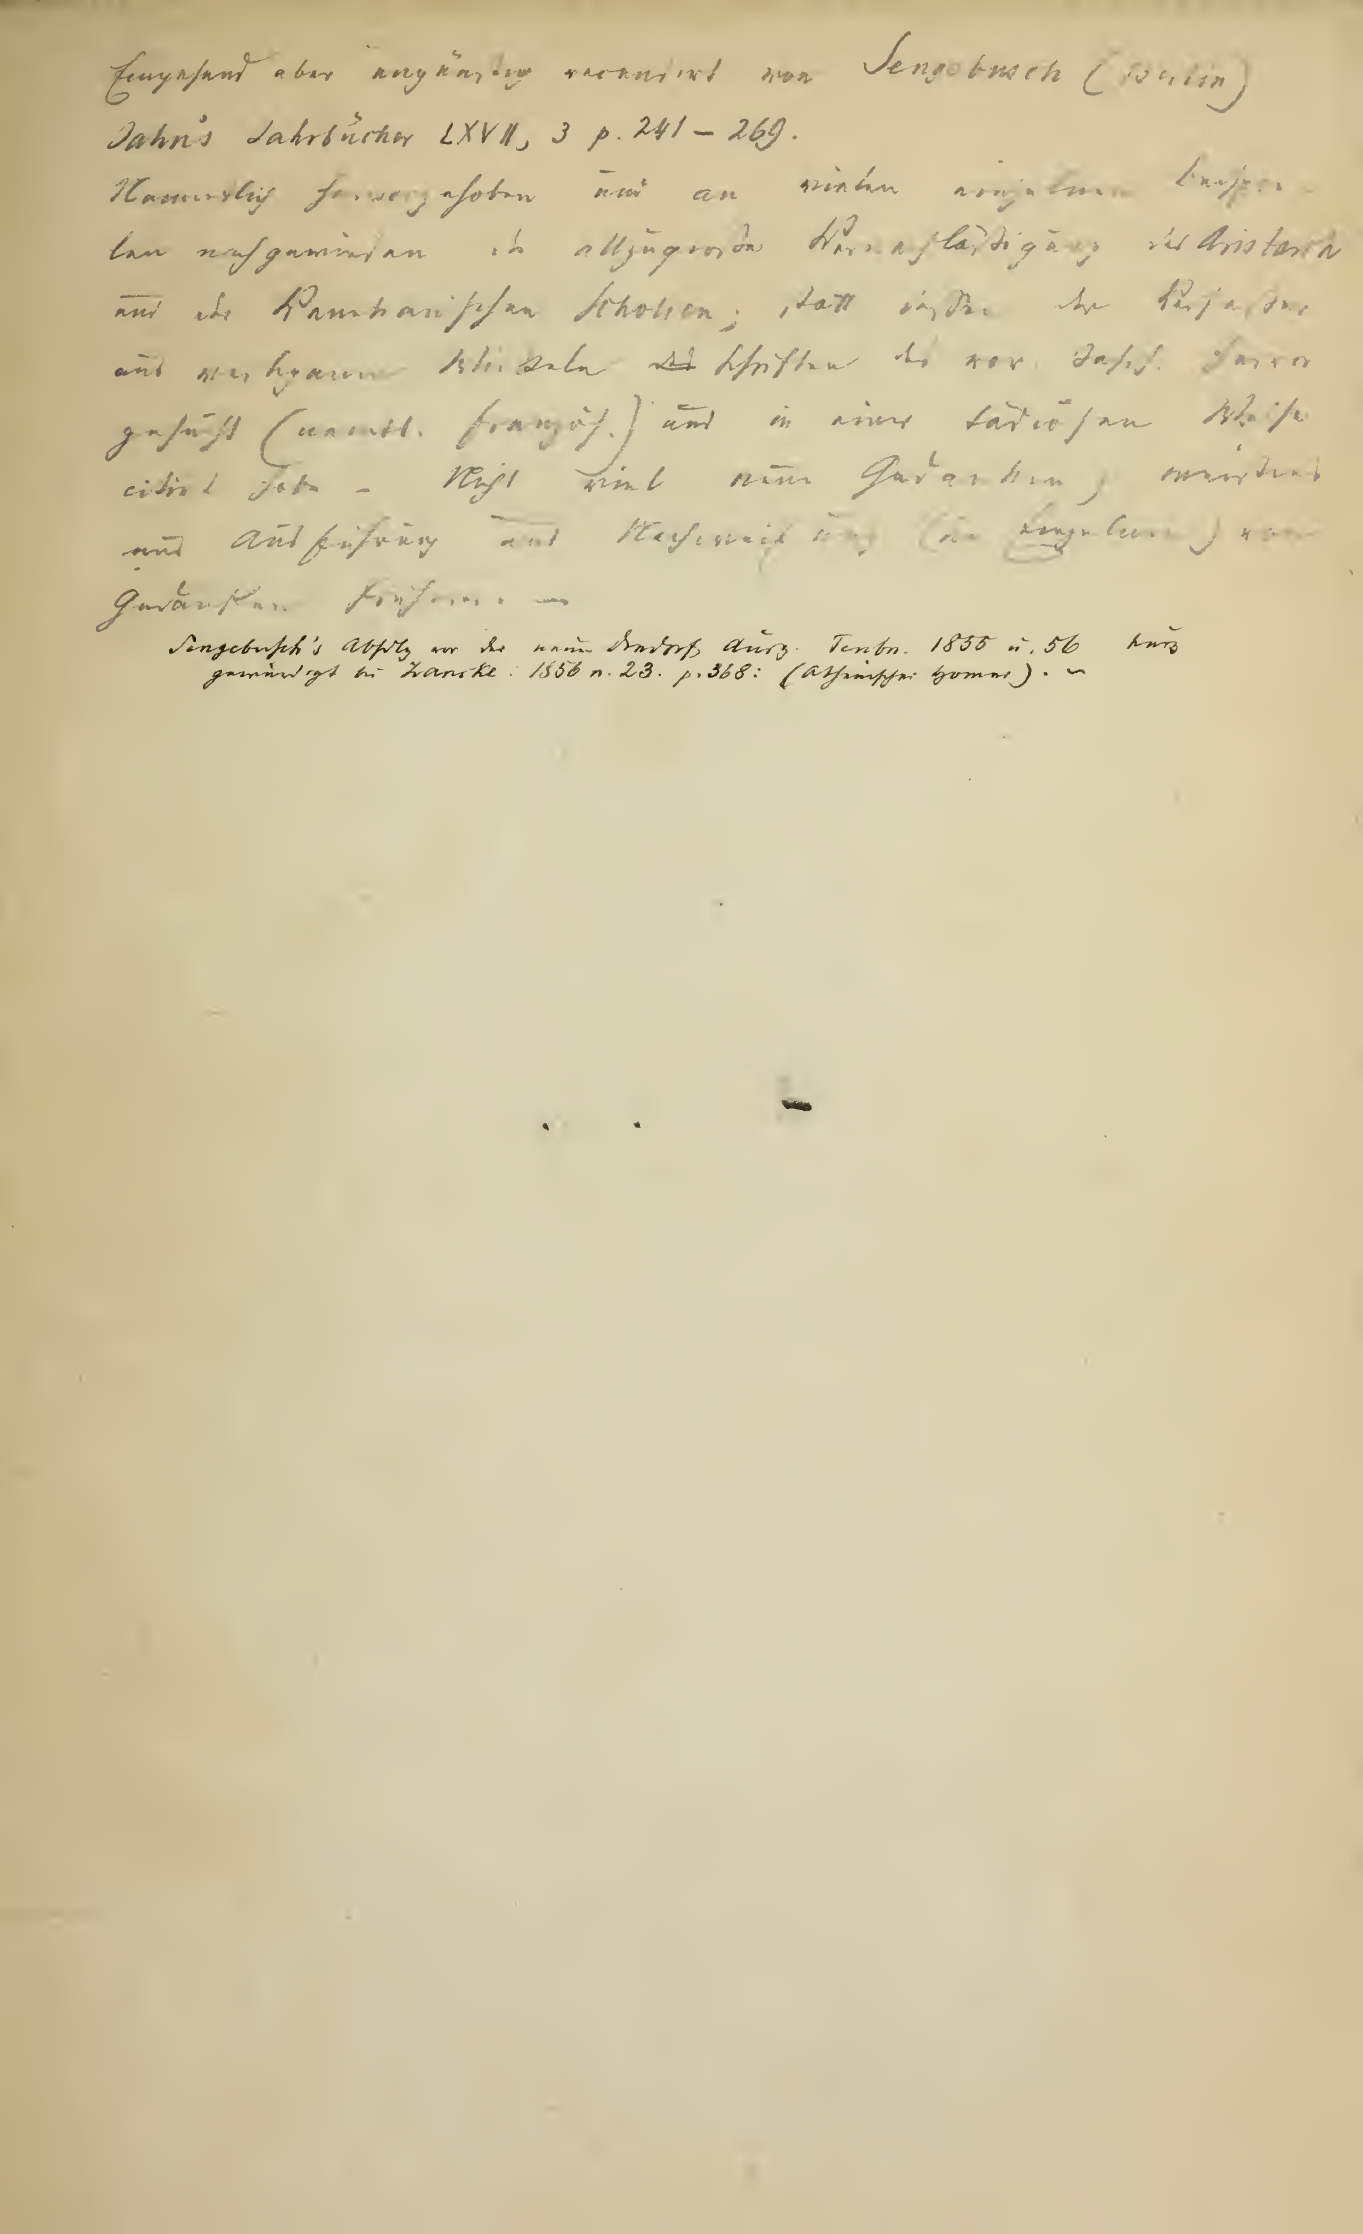 Eingehend aber ungünstig recensirt von Sengebusch (Berlin)
Jahn's Jahrbücher LXVII, 3 p. 241 – 269.
Namentlich hervorgehoben und an vielen einzelnen Beispie-
len nachgewiesen die allzugrosse Vernachlässigung des Aristarch
und der Venetianischen Scholien; statt dessen der Verfasser
aus Winkeln Schriften des vor. Jahrh. hervor
gesucht (namtl. französ.) und in einer tädiösen Weise
citirt habe – Nicht viel neue Gedanken, meistens
nur Ausführung und Nachweisung (im Einzelnen) von
Gedanken Früherer. –
Sengebusch's Abhdlg vor der neuen Dindorfs Ausg. Teubn. 1855 u. 56 kurz
gewürdigt bei Zarncke: 1856 n. 23. p. 368: (Athenischer Homer). –